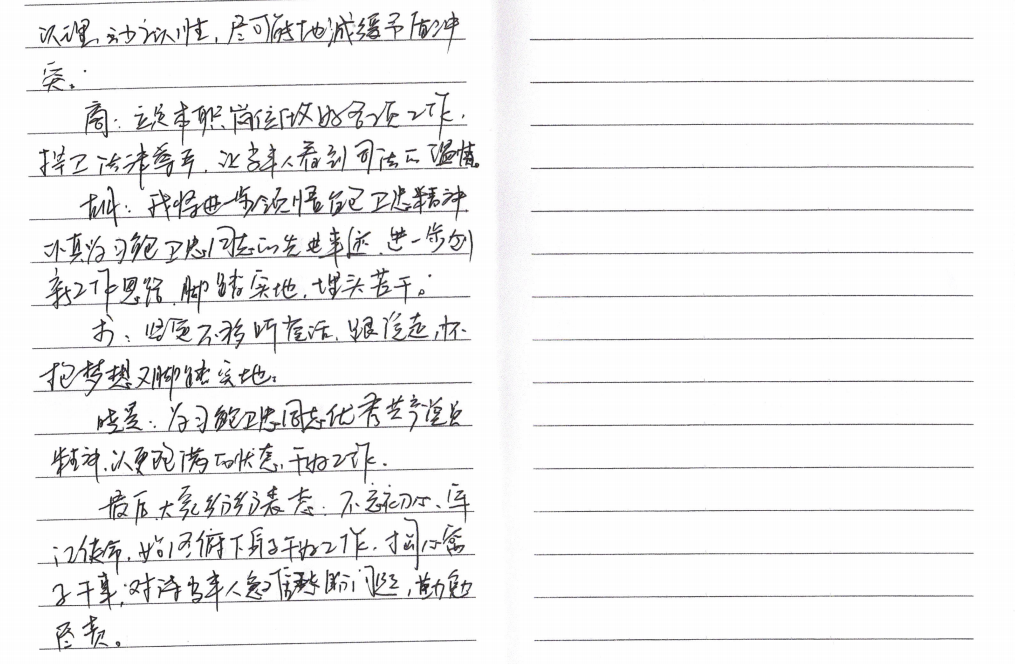 以理、动之以性，尽可能地减缓矛盾冲
突。
商：立足本职岗位做好各项工作，
捍卫法律尊严，让当事人看到司法的温情。
我将进一步领悟鲍卫忠精神
认真学习鲍卫忠同志的先进事迹，进一步创
新工作思路，脚踏实地，埋头苦干。
方：坚定不移听党话，跟党走，怀
抱梦想又脚踏实地。
晓曼：学习鲍卫忠同志优秀共产党员
精神，以更饱满的状态，干好工作。
最后大家纷纷表态：不忘初心、牢
记使命，始终俯下身子干好工作，扣心窝
子干事，对待当事人急难愁盼问题，勤勉
尽责。